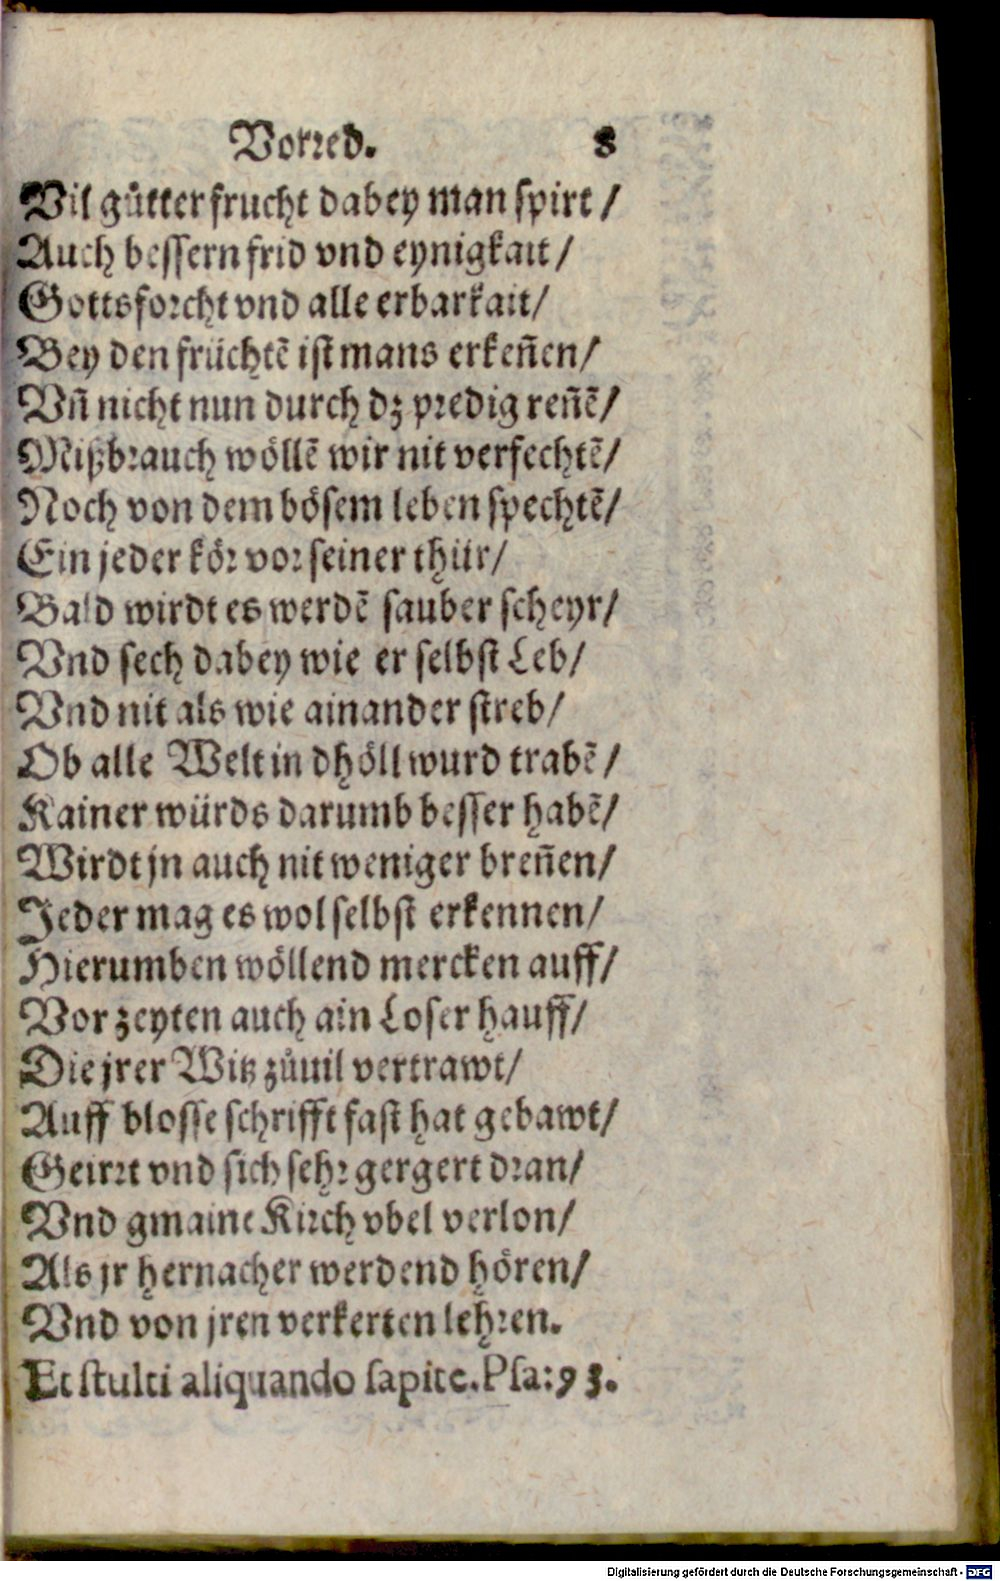 Vorred. 8
Vil gůtter frucht dabey man spirt /
Auch bessern frid vnd eynigkait /
Gottsforcht vnd alle erbarkait /
Bey den früchtẽ ist mans erkeñen /
Vñ nicht nun durch dz predig reñẽ /
Mißbrauch wöllẽ wir nit verfechtẽ /
Noch von dem bösem leben spechtẽ /
Ein jeder kör vor seiner thür /
Bald wirdt es werdẽ sauber scheyr /
Vnd sech dabey wie er selbst Leb /
Vnd nit als wie ainander streb /
Ob alle Welt in dhöll wurd trabẽ /
Kainer würds darumb besser habẽ /
Wirdt jn auch nit weniger breñen /
Jeder mag es wol selbst erkennen /
Hierumben wöllend mercken auff /
Vor zeyten auch ain Loser hauff /
Die jrer Witz zůuil vertrawt /
Auff blosse schrifft fast hat gebawt /
Geirrt vnd sich sehr gergert dran /
Vnd gmaine Kirch vbel verlon /
Als jr hernacher werdend hören /
Vnd von jren verkerten lehren.
Et stulti aliquando sapite. Psa: 93.
Digitalisierung gefördert durch die Deutsche Forschungsgemeinschaft - DFG